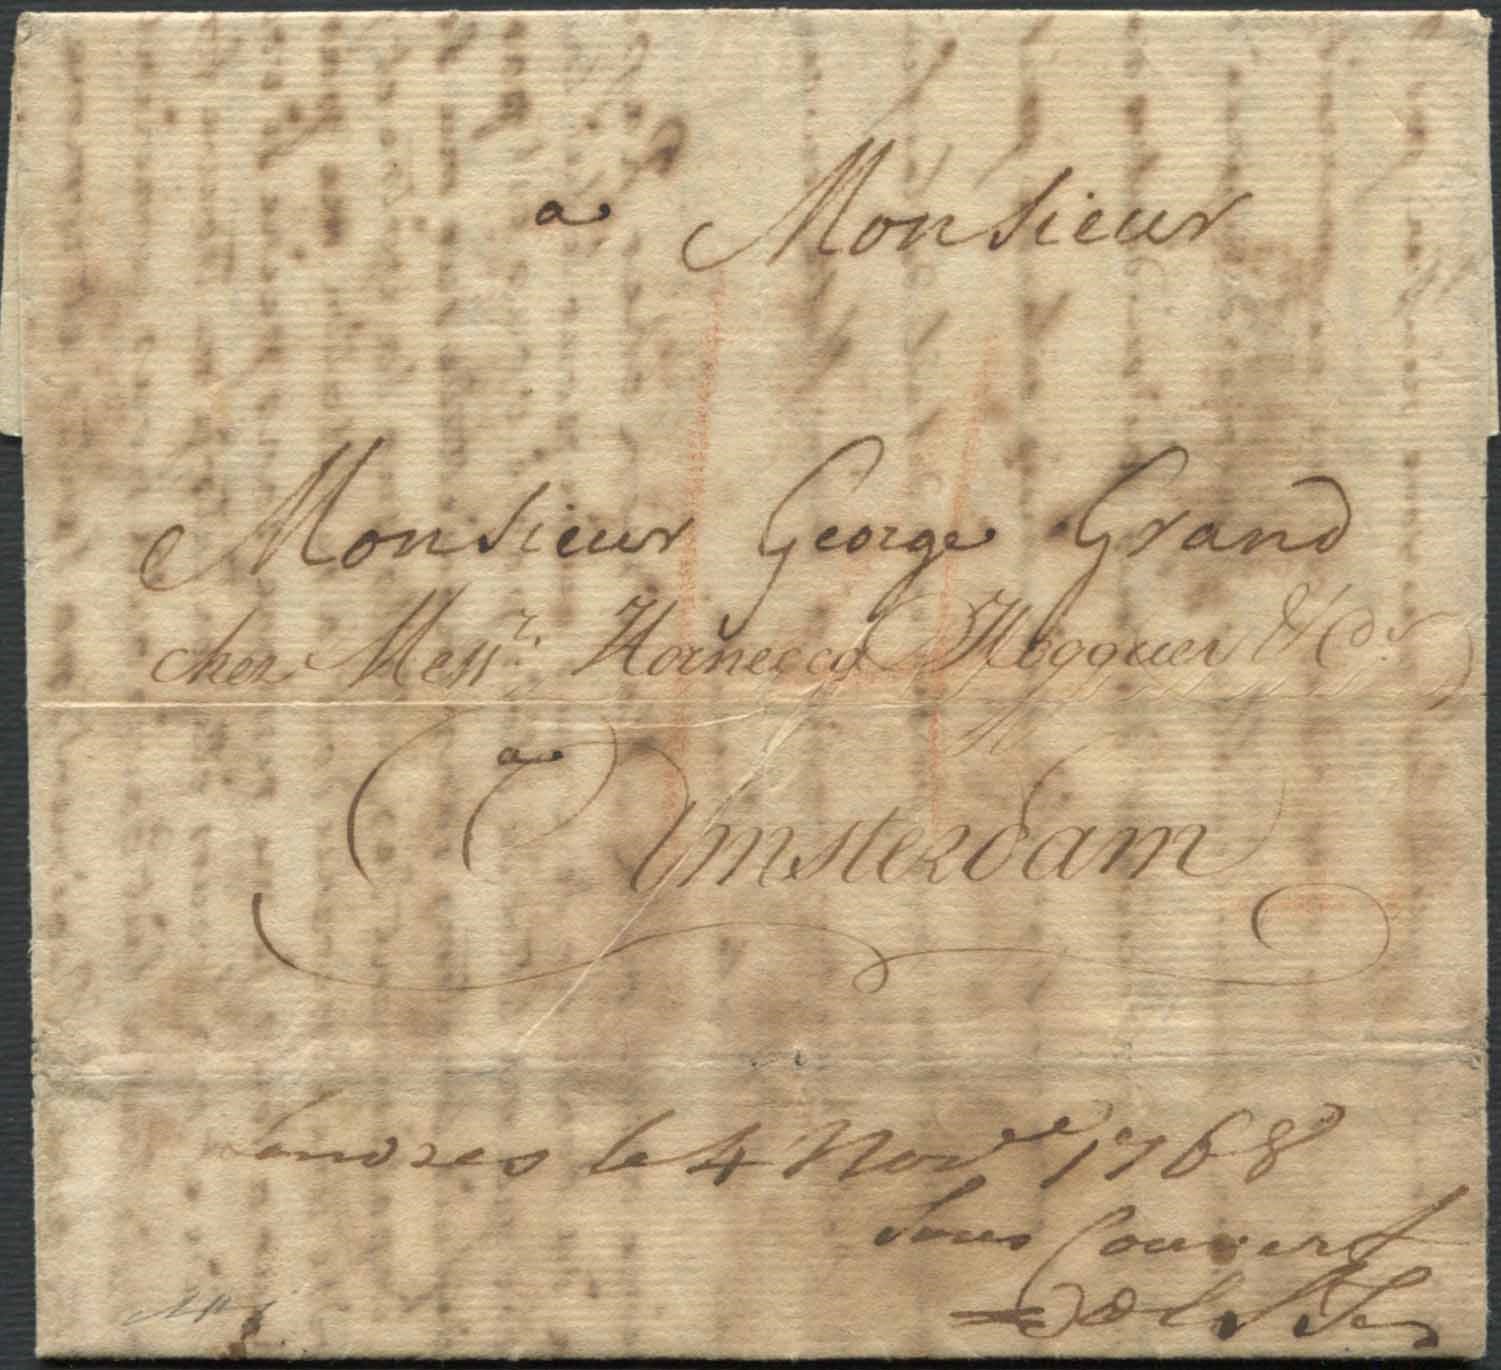 a Monsieur
Monsieur George Grand
chez Mess.rs Horneca Hogguer & C.o
a
Amsterdam
Londres le 4 Nov.re 1768
Sous Couvert